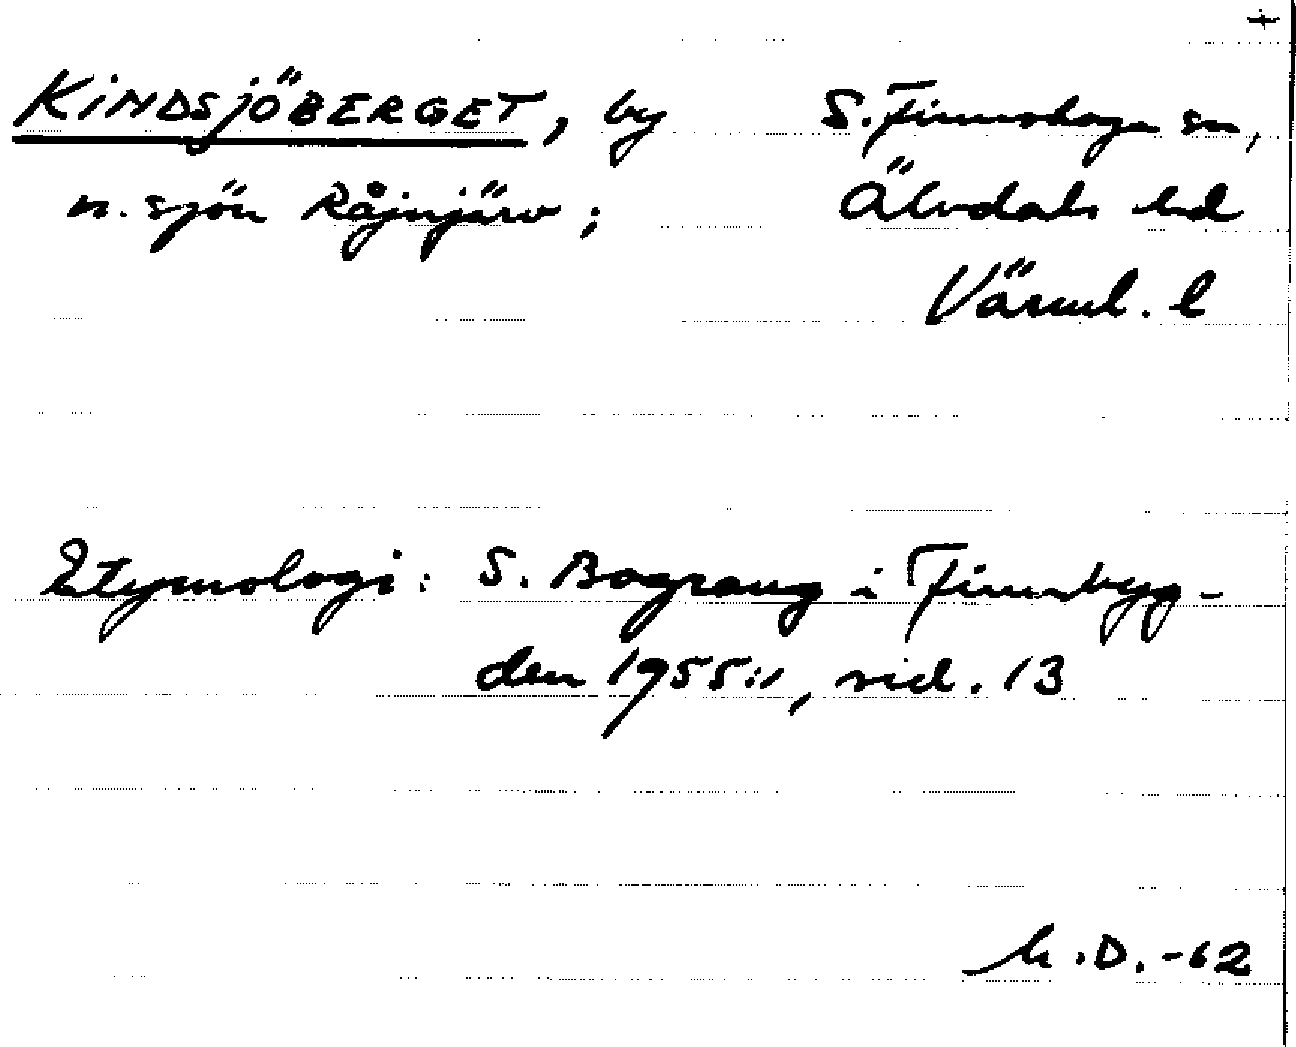 +
KINDSJÖBERGET, by S. Finnskoga sn,
n. sjön Råjnjärv; Älvdals hd
Värml. l
Etymologi: S. Bograng i Finnbyg-
den 1955:1, sid. 13
h.D.-62